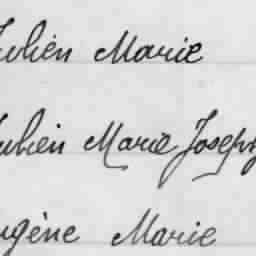 Julien Marie
Julien Marie Joseph
Eugène Marie